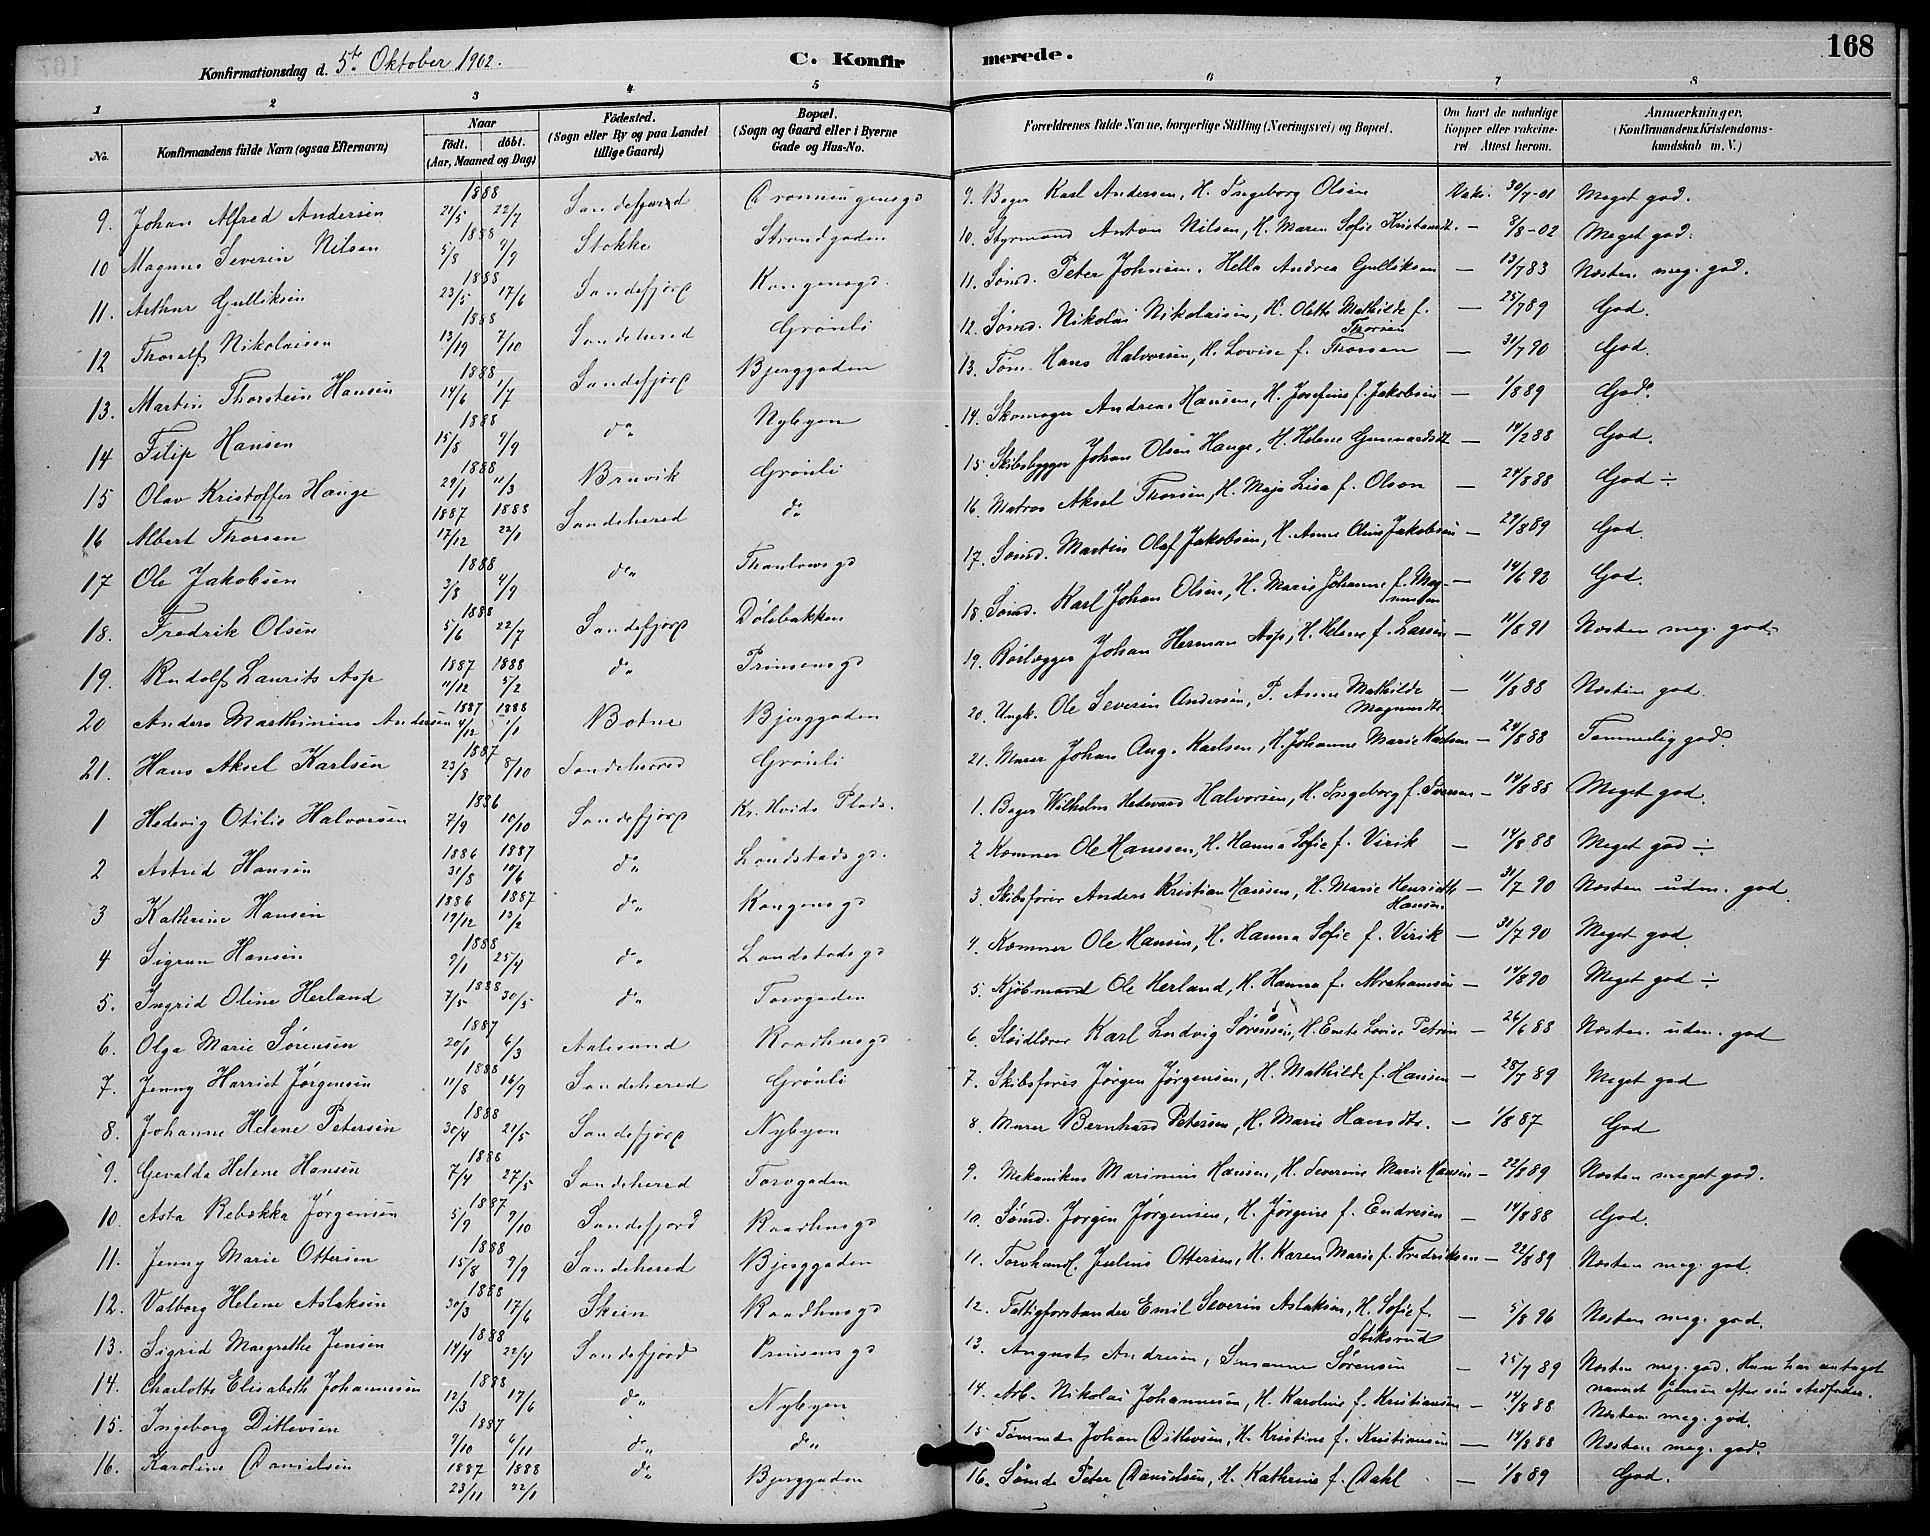 168
Konfirmationsdag d. 5te Oktober 1902.
C. Konfirmerede.
1 2 3 4 5 6 7 8
No.
Konfirmandens fulde Navn (ogsaa Efternavn)
Naar
født. døbt.
(Aar, Maaned og Dag)
Fødested.
(Sogn eller By og paa Landet
tillige Gaard)
Bopæl.
(Sogn og Gaard eller i Byerne
Gade og Hus-No.
Forældrenes fulde Navne, borgerlige Stilling (Næringsvei) og Bopæl.
Om havt de naturlige
Kopper eller vakcine-
ret. Attest herom.
Anmærkninger.
(Konfirmandens Kristendoms-
kundskab m. V.)
9. Johan Alfred Andersen 1888 21/5 22/7 Sandefjord Dronningensgd 9. Bager Karl Andersen, H. Ingeborg Olsen Vakc. 30/7-01 Meget god.
10 Magnus Severin Nilsen 1888 5/8 9/9 Stokke Strandgaden 10. Styrmand Anton Nilsen, H. Maren Sofie Kristiansdt. — 8/8-02 Meget god.
11. Arthur Gulliksen 1888 23/5 17/6 Sandefjord Kongensgd. 11. Sømd. Peter Johnsen, Hella Andrea Gulliksen — 13/7 83 Næsten meg. god.
12 Thoralf Nikolaisen 1888 7/10 Sandeherred Grønli 12. Sømd. Nikolai Nikolaisen, H. Olette Mathilde f. Thorsen — 25/7 89 God.
13. Martin Thorstein Hansen 1888 14/6 1/7 Sandefjord Bjerggaden 13. Tøm. Hans Halvorsen, H. Lovise f. Thorsen — 31/7 90 God.
14 Filip Hansen 1888 15/8 9/9 do Nybyen 14. Skomager Andreas Hansen, H. Josefine f. Jakobsen — 1/8 89 God.
15 Olav Kristoffer Hauge 1888 29/1 11/3 Bruvik Grønli 15. Skibsbygger Johan Olsen Hauge, H. Helene Gunnarsdt — 14/2 88 God.
16 Albert Thorsen 1887 17/12 1888 22/1 Sandeherred do 16. Matros Aksel Thorsen, H. Maja Lisa f. Olson — 24/8 88 God ÷
17 Ole Jakobsen 1888 3/8 4/9 do Thaulowsgd 17. Sømd. Martin Olaf Jakobsen, H. Anne Oline Jakobsen — 29/8 89 God.
18. Fredrik Olsen 1888 5/6 22/7 Sandefjord Dølebakken 18. Sømd. Karl Johan Olsen, H. Marie Johanne f. Magnussen — 14/6 92 God.
19. Rudolf Laurits Asp 1887 11/12 1888 5/2 do Prinsensgd 19. Rørlægger Johan Herman Asp, H. Helene f. Larsen — 11/8 91 Næsten meg. god.
20 Anders Marthinius Andersen 1887 4/12 1888 1/1 Botne Bjerggaden 20. Ungk. Ole Severin Andersen, P. Anne Mathilde Magnusdt. — 11/8 88 Næsten god.
21. Hans Aksel Karlsen 1887 23/8 8/10 Sandeherred Grønli 21. Murer Johan Aug. Karlsen, H. Johanne Marie Karlsen — 24/8 88 Temmelig god.
1 Hedevig Otilie Halvorsen 1886 7/9 10/10 Sandefjord Kr. Hvids Plads. 1. Bager Wilhelm Hedevard Halvorsen, H. Ingeborg f. Iversen — 14/8 88 Meget god.
2 Astrid Hansen 1886 31/8 1887 10/6 do Landstadsgd. 2 Kæmner Ole Hanssen, H. Hanna Sofie f. Virik — 14/8 88 Meget god ÷
3 Kathrine Hansen 1886 19/12 1887 13/2 do Kongensgd 3. Skibsfører Anders Kristian Hansen, H. Marie Henriette Hansen — 31/7 90 Næsten udm. god.
4 Sigrun Hansen 1888 9/1 25/4 do Landstadsgd 4. Kæmner Ole Hansen, H. Hanna Sofie f. Virik — 31/7 90 Meget god.
5. Ingrid Oline Herland 1888 7/5 30/5 do Torvgaden 5. Kjøbmand Ole Herland, H. Hanna f. Abrahamsen — 14/8 90 Meget god ÷
6. Olga Marie Sørensen 1887 20/1 6/3 Aalesund Raadhusgd 6. Sløidlærer Karl Ludvig Sørensen, H. Emte Lovise Petrine — 26/6 88 Næsten udm. god
7. Jenny Harriet Jørgensen 1888 11/8 16/9 Sandeherred Grønli 7. Skibsfører Jørgen Jørgensen, H. Mathilde f. Hansen — 28/7 89 Meget god
8. Johanne Helene Petersen 1888 30/4 21/5 Sandefjord Nybyen 8. Murer Bernhard Petersen, H. Marie Hansdt. — 1/8 87 God
9. Gevalda Helene Hansen 1888 7/4 27/5 Sandeherred Torvgaden 9. Mekanikus Marinius Hansen, H. Severine Marie Hansen — 22/8 89 Næsten meget god.
10. Asta Rebekka Jørgensen 1887 5/9 9/10 Sandefjord Raadhusgd 10. Sømd. Jørgen Jørgensen, H. Jørgine f. Endresen — 14/8 88 God.
11. Jenny Marie Ottersen 1888 15/8 9/9 Sandeherred Bjerggaden 11. Torvhandl. Julius Ottersen, H. Karen Marie f. Fredriksen — 22/8 89 Næsten meg. god.
12. Valborg Helene Aslaksen 1888 30/3 17/6 Skien Raadhusgd 12. Fattigforstander Emil Severin Aslaksen, H. Sofie f. Stiksrud — 5/8 96 Næsten meg. god.
13. Sigrid Margrethe Jensen 1888 14/4 22/4 Sandefjord Prinsensgd 13. August Andresen, Susanne Sørensen — 25/7 89 Næsten meg. god. Hun har antaget
navnet Jensen efter sin stedfader.
14. Charlotte Elisabeth Johannesen 1888 12/3 17/6 do Nybyen 14. Arb. Nikolai Johannesen, H. Karoline f. Kristiansen — 14/8 88 Næsten meg. god.
15. Ingeborg Ditlevsen 1887 9/10 6/11 do do 15 Tømmd. Johan Ditlevsen, H. Kristine f. Kristiansen — 14/8 88 Næsten meg. god.
16. Karoline Danielsen 1887 23/11 1888 22/1 do Bjerggaden 16. Sømd. Peter Danielsen, H. Kathrine f. Dahl — 1/8 89 God.